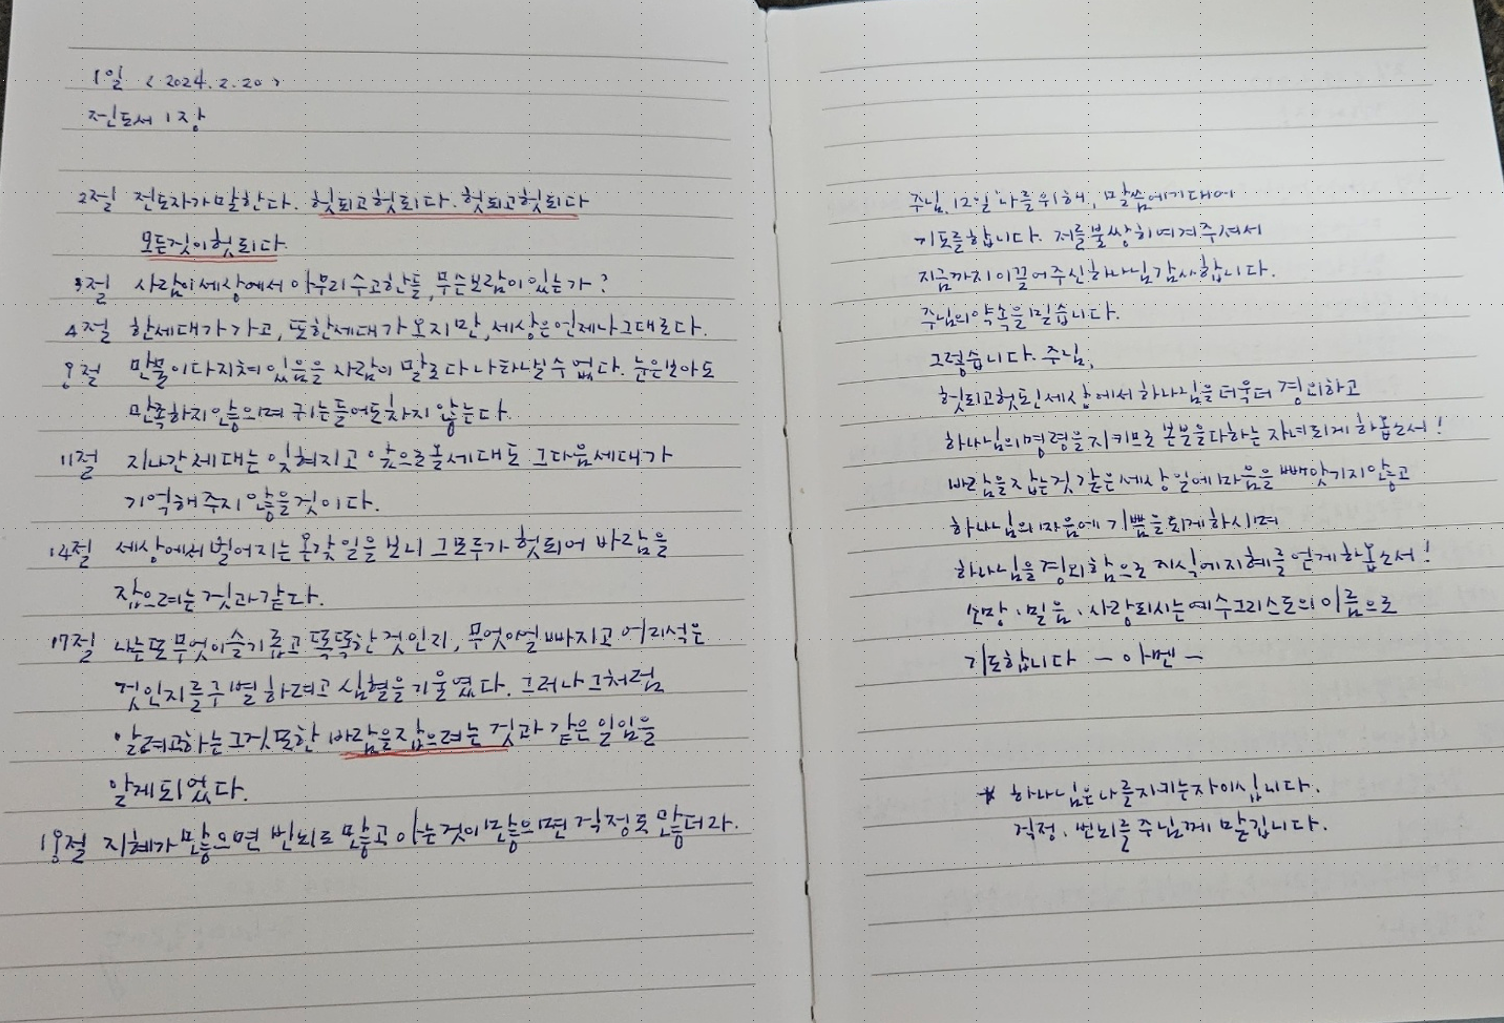 1일 < 2024. 2. 20 >
전도서 1장
2절 전도자가 말한다. 헛되고 헛되다. 헛되고 헛되다
모든것이 헛되다.
3절 사람이 세상에서 아무리 수고한들, 무슨 보람이 있는가?
4절 한세대가 가고, 또 한세대가 오지만, 세상은 언제나 그대로다.
8절 만물이 다 지쳐 있음을 사람이 말로 다 나타낼 수 없다. 눈은 보아도
만족하지 않으며 귀는 들어도 차지 않는다.
11절 지나간 세대는 잊혀지고 앞으로 올 세대도 그 다음 세대가
기억해 주지 않을 것이다.
14절 세상에서 벌어지는 온갖 일을 보니 그 모두가 헛되어 바람을
잡으려는 것과 같다.
17절 나는 또 무엇이 슬기롭고 똑똑한 것인지, 무엇이 얼빠지고 어리석은
것인지를 구별하려고 심혈을 기울였다. 그러나 그처럼
알려고 하는 그것 또한 바람을 잡으려는 것과 같은 일임을
알게 되었다.
18절 지혜가 많으면 번뇌도 많고 아는 것이 많으면 걱정도 많더라.
주님. 12일 나를 위해, 말씀에 기대어
기도를 합니다. 저를 불쌍히 여겨 주셔서
지금까지 이끌어 주신 하나님 감사합니다.
주님의 약속을 믿습니다.
그렇습니다. 주님,
헛되고 헛된 세상에서 하나님을 더욱더 경외하고
하나님의 명령을 지키므로 본분을 다하는 자녀되게 하옵소서!
바람을 잡는것 같은 세상 일에 마음을 빼앗기지 않고
하나님의 마음에 기쁨을 되게 하시며
하나님을 경외함으로 지식에 지혜를 얻게 하옵소서!
소망. 믿음. 사랑되시는 예수그리스도의 이름으로
기도합니다 - 아멘 -
* 하나님은 나를 지키는 자이십니다.
걱정. 번뇌를 주님께 맡깁니다.